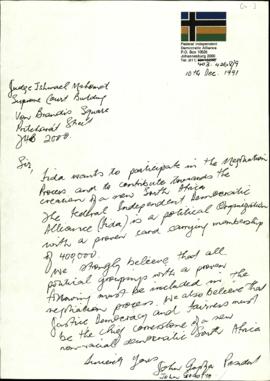 Federal Independent
Democratic Alliance
P.O. Box 10528
Johannesburg 2000
Tel: (011)
403-4268/9
10th Dec. 1991
Judge Ishmael Mahomed
Supreme Court Building
Von Brandis Square
Pritchard Street
JHB 2000.
Sir,
Fida wants to participate in the Negotiation
Process and to contribute towards the
creation of a new South Africa
The Federal Independent Democratic
Alliance (Fida) is a political Organization
with a proven card carrying membership
of 400,000.
We strongly believe that all
political groupings with a proven
following must be included in the
negotiation process. We also believe that
Justice Democracy and fairness must
be the chief cornerstone of a new
non-racial democratic South Africa
Sincerely Yours
John